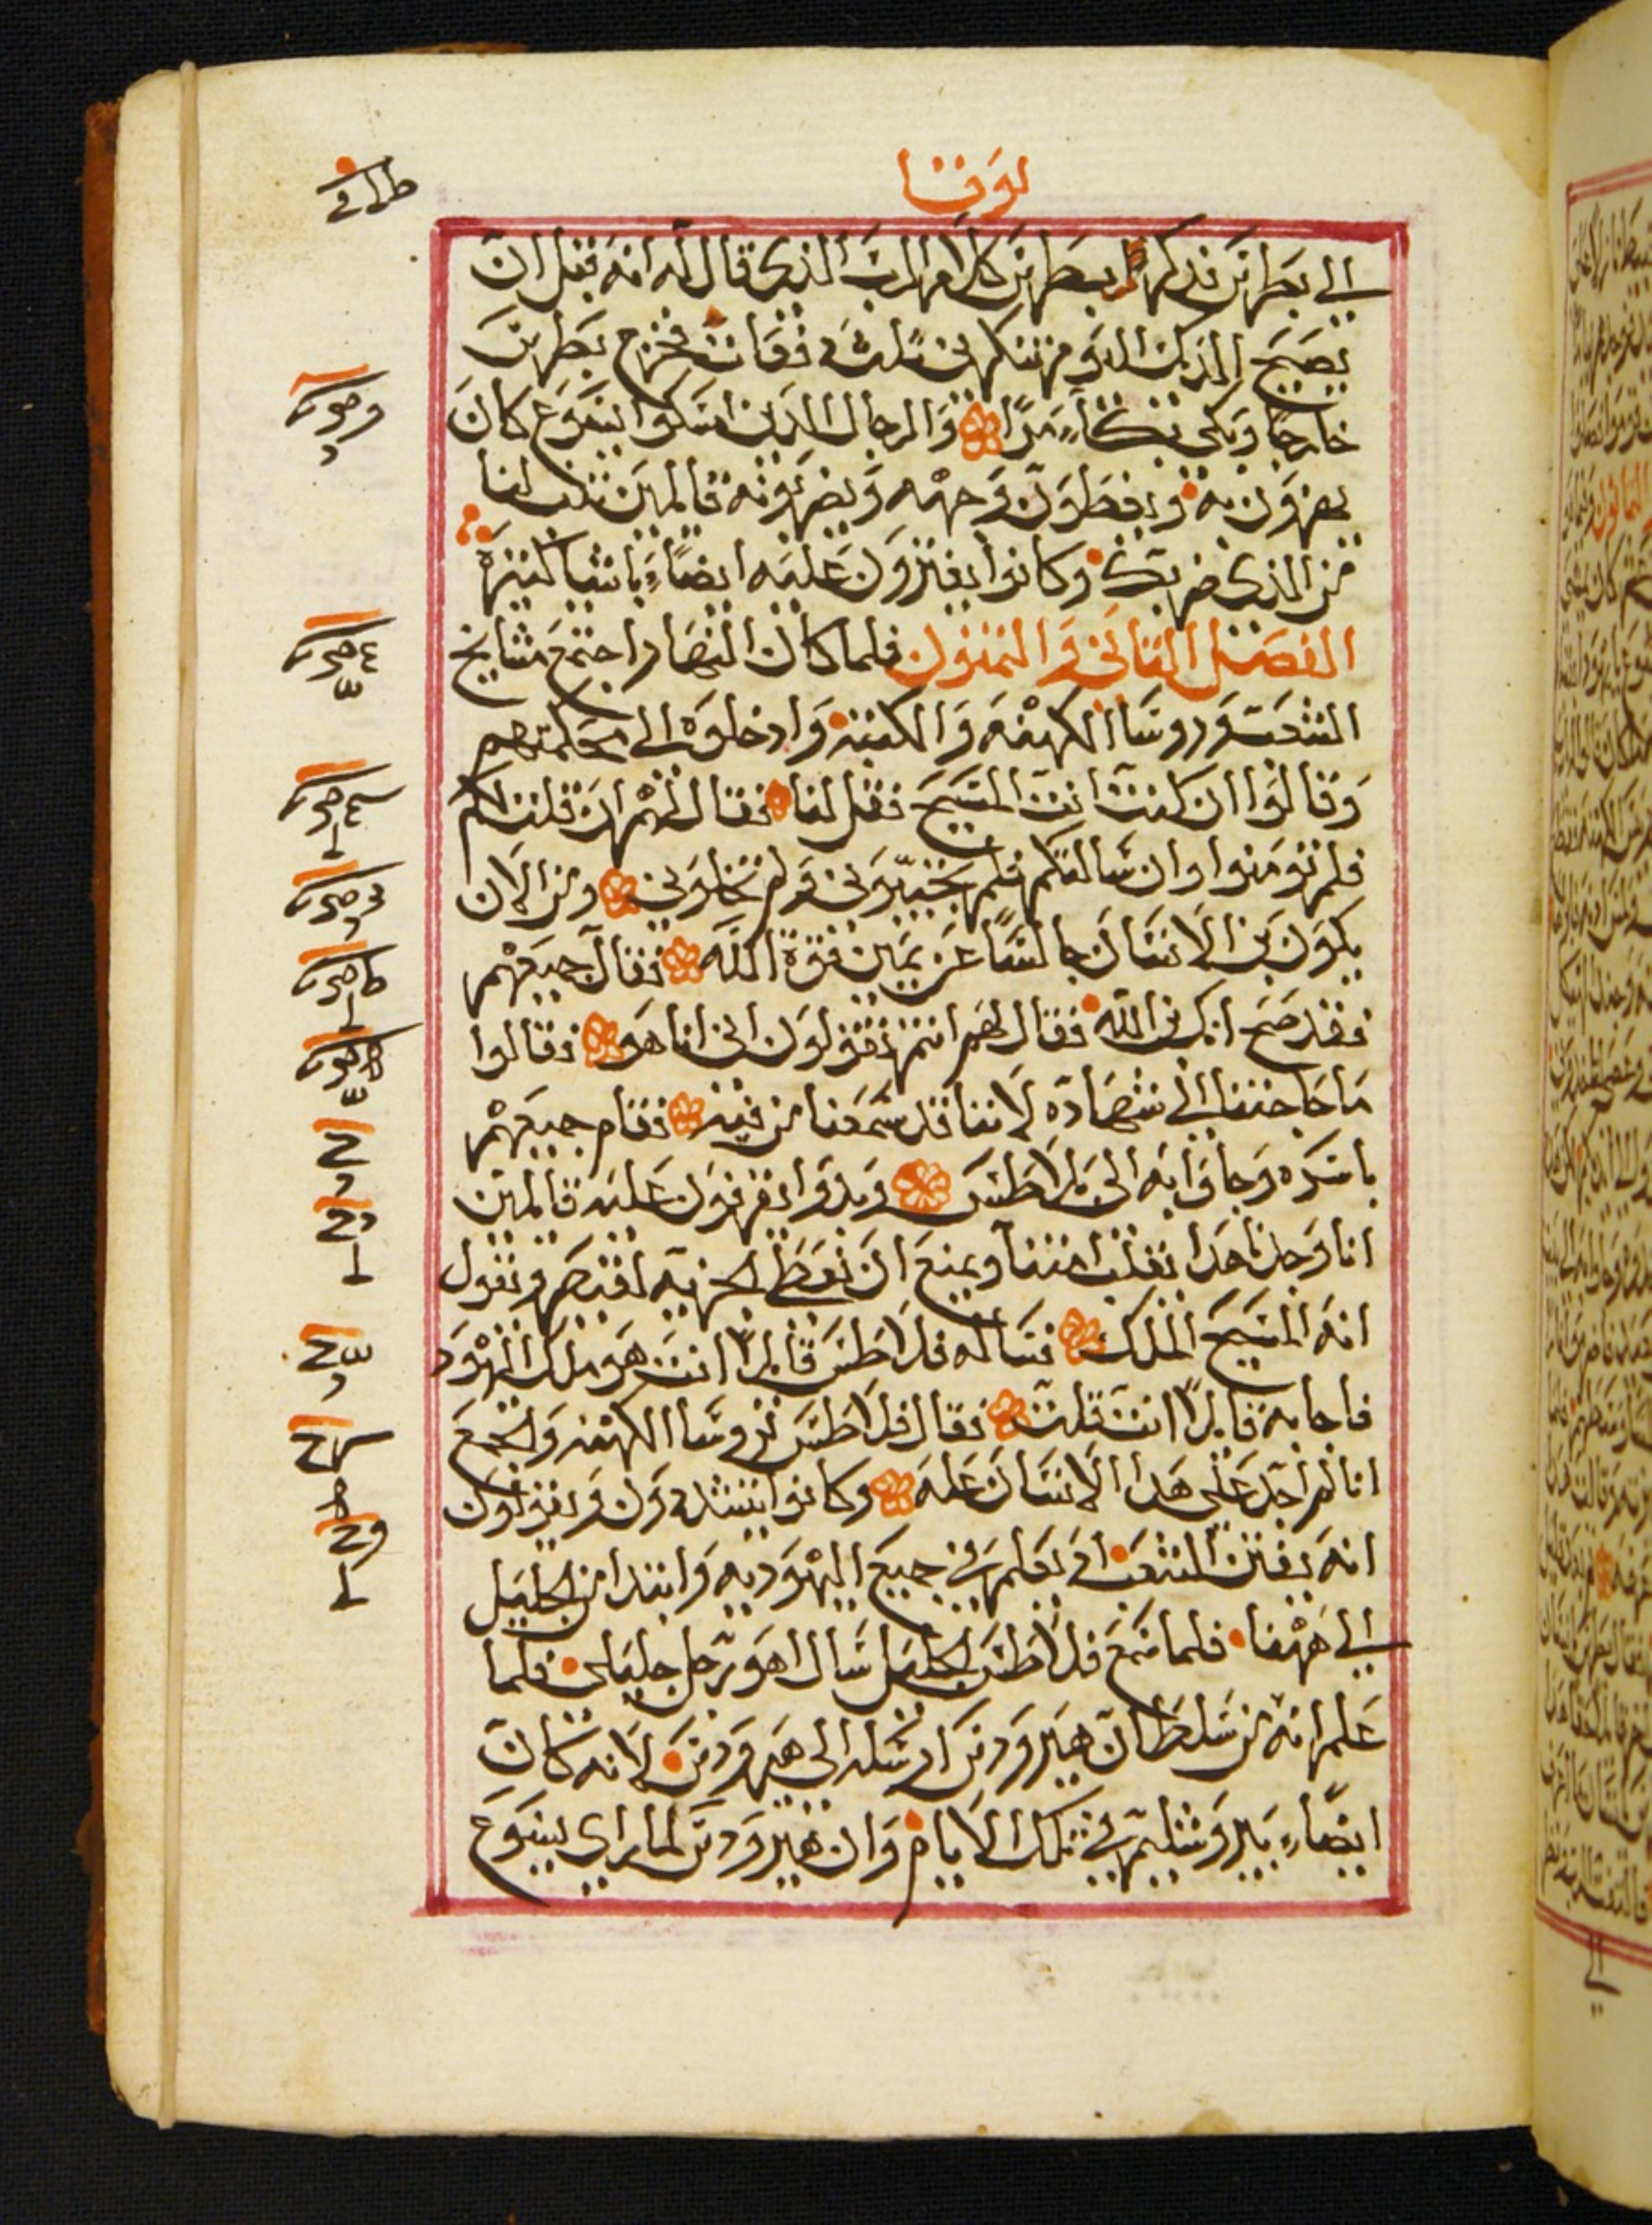 لوقا
الي بطرس فذكر بطرس كلام الرب الذي قال له انه قبل ان
يصيح الديك اليوم تنكرني ثلث دفعات فخرج بطرس
خارجا وبكى بكاء مرا والرجال الذين امسكوا يسوع كان
يهزون به ويغطون وجهه ويضربونه قايلين تنبا لنا
من الذي ضربك وكانوا يفترون عليه ايضاء باشيا كثيره
الفصل الثاني والثمنون فلما كان النهار اجتمع مشايخ
الشعب وروسا الكهنه والكتبه وادخلوه الي محكمتهم
وقالوا ان كنت انت المسيح فقل لنا فقال لهم ان قلت لكم
فلم تومنوا وان سالتكم فلم تجيبوني ولم تخلوني ومن الان
يكون بن الانسان جالسا عن يمين قوة الله فقال جميعهم
فقد صح انك بن الله فقال لهم انتم تقولون اني انا هو فقالوا
ما حاجتنا الي شهاده لاننا قد سمعنا من فيه فقام جميعهم
باسره وجاوا به الى بلاطس وبدوا يقرفون عليه قايلين
انا وجدنا هدا يقلب امتنا ويمنع ان نعطي الجزيه لقيصر ويقول
انه المسيح الملك فساله فلاطس قايلا انت هو ملك اليهود
فاجابه قايلا انت قلت فقال فلاطس لروسا الكهنه والجمع
انا لم اجد على هدا الانسان عله وكانوا يتشددون ويقولون
انه يفتن الشعب اذ يعلم في جميع اليهوديه وابتدا من الجليل
الي ههنا فلما سمع فلاطس الجليل سال اهو رجل جليلي فلما
علم انه من سلطان هيرودس ارسله الي هيرودس لانه كان
ايضاء بيروشليم في تلك الايام وان هيرودس لما راي يسوع